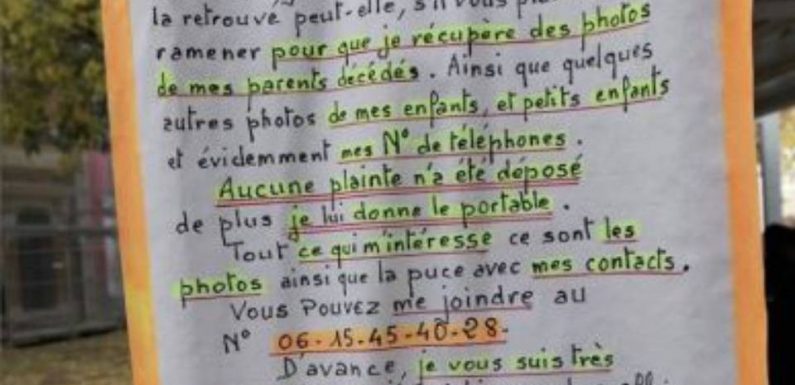 la retrouvé peut-elle, s'il vous
ramener pour que je récupère des photos
de mes parents décédés. Ainsi que quelques
autres photos de mes enfants, et petits enfants
et évidemment mes N° de téléphones.
Aucune plainte n'a été déposé
de plus je lui donne le portable.
Tout ce qui m'intéresse ce sont les
photos ainsi que la puce avec mes contacts.
Vous Pouvez me joindre au
N° 06-15-45-40-28-
D'avance, je vous suis très